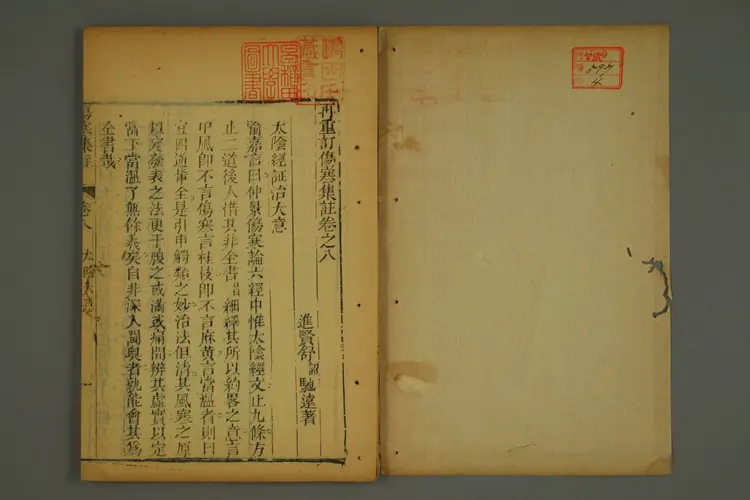 再重訂傷寒集註卷之八
進賢舒詔馳遠著
太陰經証治大意
喻嘉言曰仲景傷寒論六經中惟太陰經文止九條方
止二道後人惜其非全書昌細繹其所以約畧之意言
中風即不言傷寒言桂枝即不言麻黄言當溫者則曰
宜四逆輩全是引申觸類之妙治法但清其風寒之原
以定發表之法更于腹之或滿或痛間辨其虛實以定
當下當溫了無餘義矣自非深入閫奥者孰能會其為
全書哉
傷寒集註 卷八 太陰
圖書
597
4